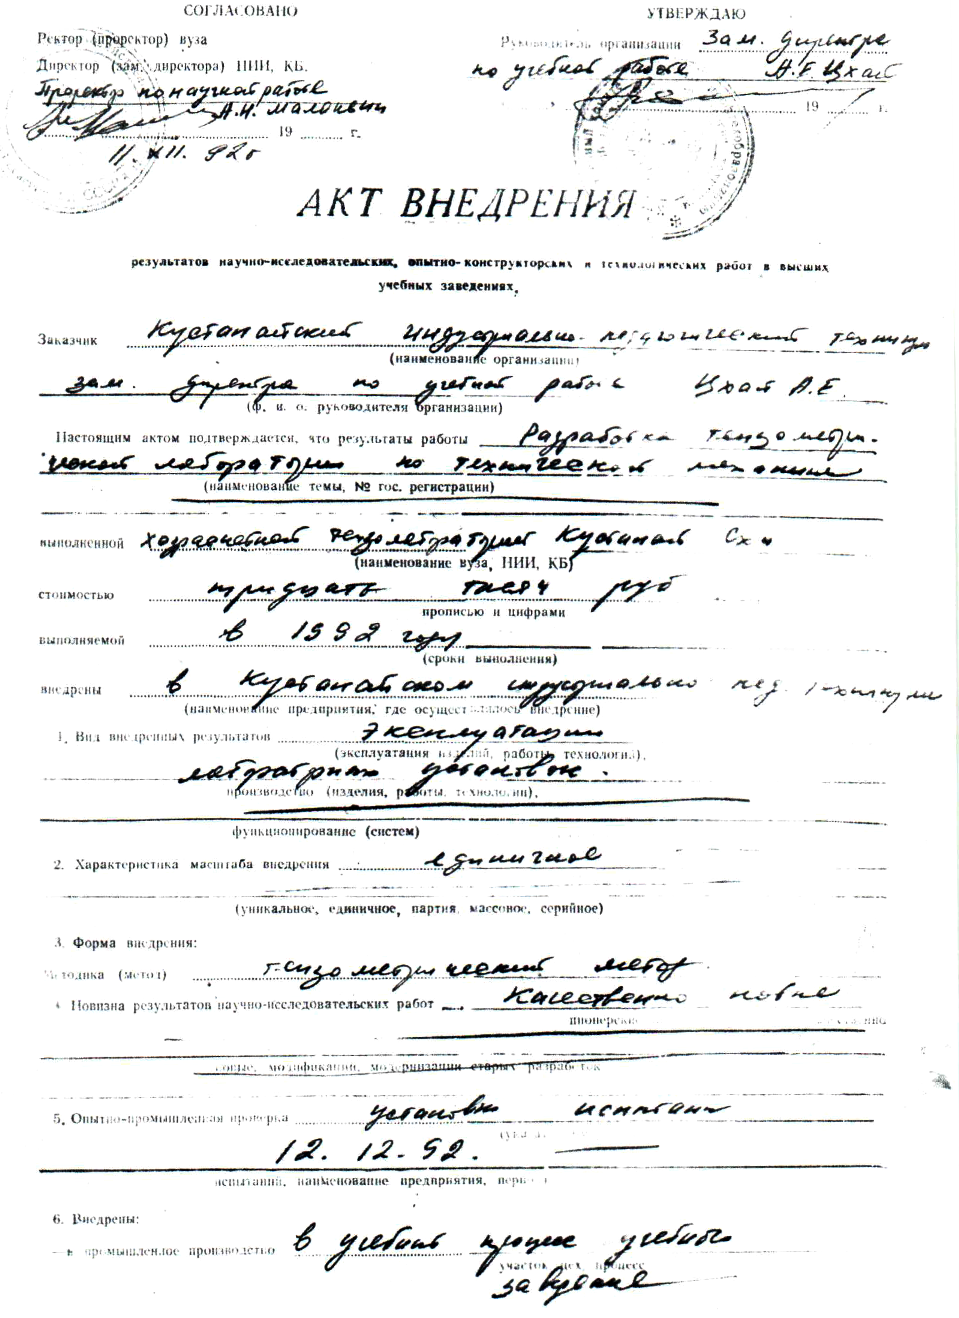 СОГЛАСОВАНО
УТВЕРЖДАЮ
Ректор (проректор) вуза
Руководитель организации Зам. директора
Директор (зам. директора) НИИ, КБ.
по учебной работе А.Е. Цхай
Проректор по научной работе
А.Н. Малоквин
19 г.
19 г.
11. XII. 92 г
АКТ ВНЕДРЕНИЯ
результатов научно-исследовательских, опытно-конструкторских и технологических работ в высших
учебных заведениях.
Заказчик Кустанайский индустриально-педагогический техникум
(наименование организации)
зам. директора по учебной работе Цхай А.Е.
(ф. и. о. руководителя организации)
Настоящим актом подтверждается, что результаты работы Разработка тензометри-
ческой лаборатории по технической механике
(наименование темы, № гос. регистрации)
выполненной хозрасчетной тензолабораторией Кустанай Схи
(наименование вуза, НИИ, КБ)
стоимостью тридцать тысяч руб
прописью и цифрами
выполняемой в 1992 году
(сроки выполнения)
внедрены в Кустанайском индустриально пед. техникуме
(наименование предприятия, где осуществлялось внедрение)
1. Вид внедренных результатов Эксплуатация
(эксплуатация изделий, работы, технологии),
лабораторных установок.
производство (изделия, работы, технологии),
функционирование (систем)
2. Характеристика масштаба внедрения единичное
(уникальное, единичное, партия, массовое, серийное)
3. Форма внедрения:
Методика (метод) тензометрический метод
4. Новизна результатов научно-исследовательских работ Качественно новые
пионерские
новые, модификации, модернизации старых разработок
5. Опытно-промышленная проверка установки испытаны
12. 12. 92.
испытаний, наименование предприятия, период
6. Внедрены:
— в промышленное производство в учебный процесс учебного
участок, цех, процесс
заведение